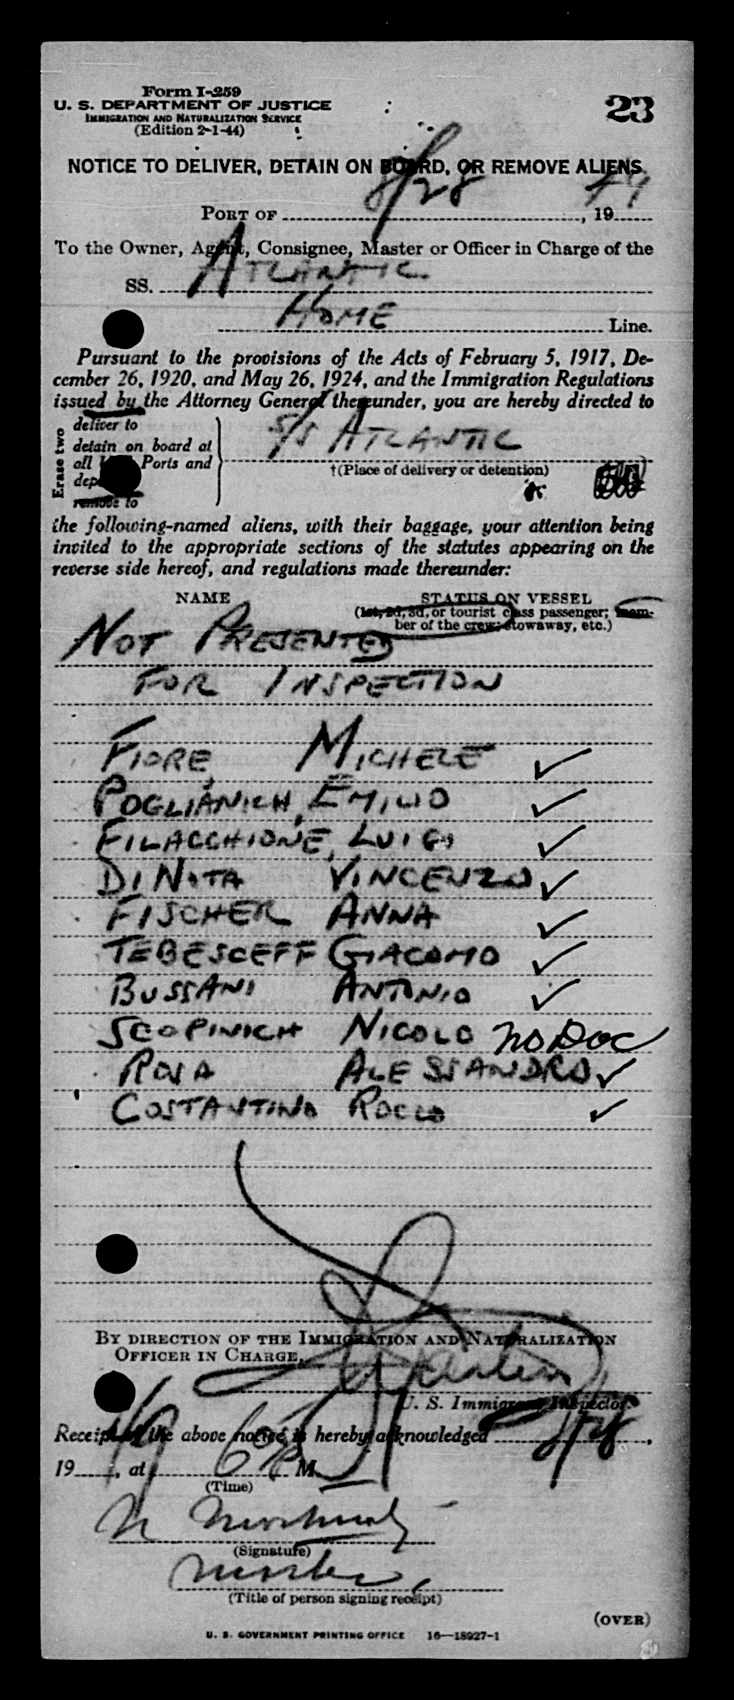 Form I-259
U. S. DEPARTMENT OF JUSTICE
IMMIGRATION AND NATURALIZATION SERVICE
(Edition 2-1-44)
23
NOTICE TO DELIVER, DETAIN ON BOARD, OR REMOVE ALIENS
8/28 49
PORT OF , 19
To the Owner, Agent, Consignee, Master or Officer in Charge of the
SS. ATLANTIC
HOME Line.
Pursuant to the provisions of the Acts of February 5, 1917, De-
cember 26, 1920, and May 26, 1924, and the Immigration Regulations
issued by the Attorney General thereunder, you are hereby directed to
Erase two
deliver to
detain on board at
all Ports and
remove to
S/S ATLANTIC
†(Place of delivery or detention)
the following-named aliens, with their baggage, your attention being
invited to the appropriate sections of the statutes appearing on the
reverse side hereof, and regulations made thereunder:
NAME STATUS ON VESSEL
(1st, 2d, 3d, or tourist class passenger; mem-
ber of the crew; stowaway, etc.)
NOT PRESENTED
FOR INSPECTION
FIORE, MICHELE ✓
POGLIANICH, EMILIO ✓
FILACCHIONE, LUIGI ✓
DINOTA VINCENZO ✓
FISCHER ANNA ✓
TEBESCEFF GIACOMO ✓
BUSSANI ANTONIO ✓
SCOPINICH NICOLO no Doc
ROSA ALESSANDRO ✓
COSTANTINO ROCCO ✓
BY DIRECTION OF THE IMMIGRATION AND NATURALIZATION
OFFICER IN CHARGE,
U. S. Immigrant Inspector.
Receipt of the above notice is hereby acknowledged 8/28,
19 49, at 6 P M.
(Time)
(Signature)
(Title of person signing receipt)
(OVER)
U. S. GOVERNMENT PRINTING OFFICE 16—18927-1